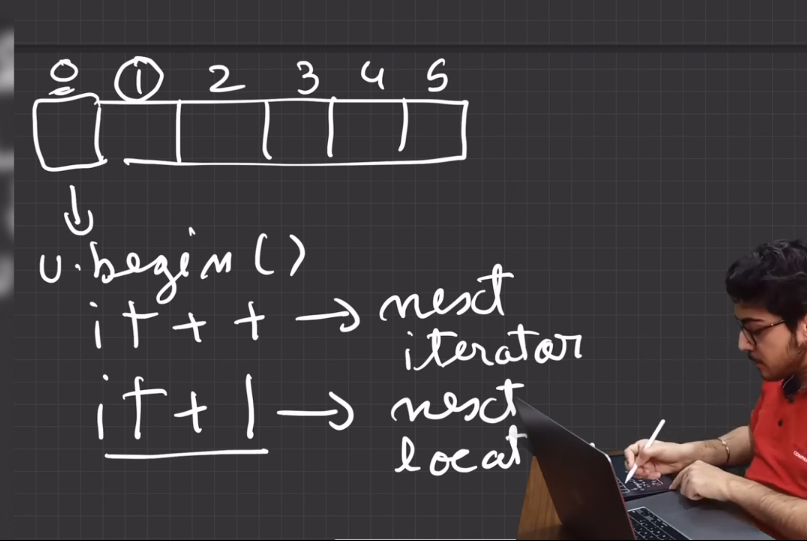 0 1 2 3 4 5
v.begin()
it++ → next
iterator
it+1 → next
locat